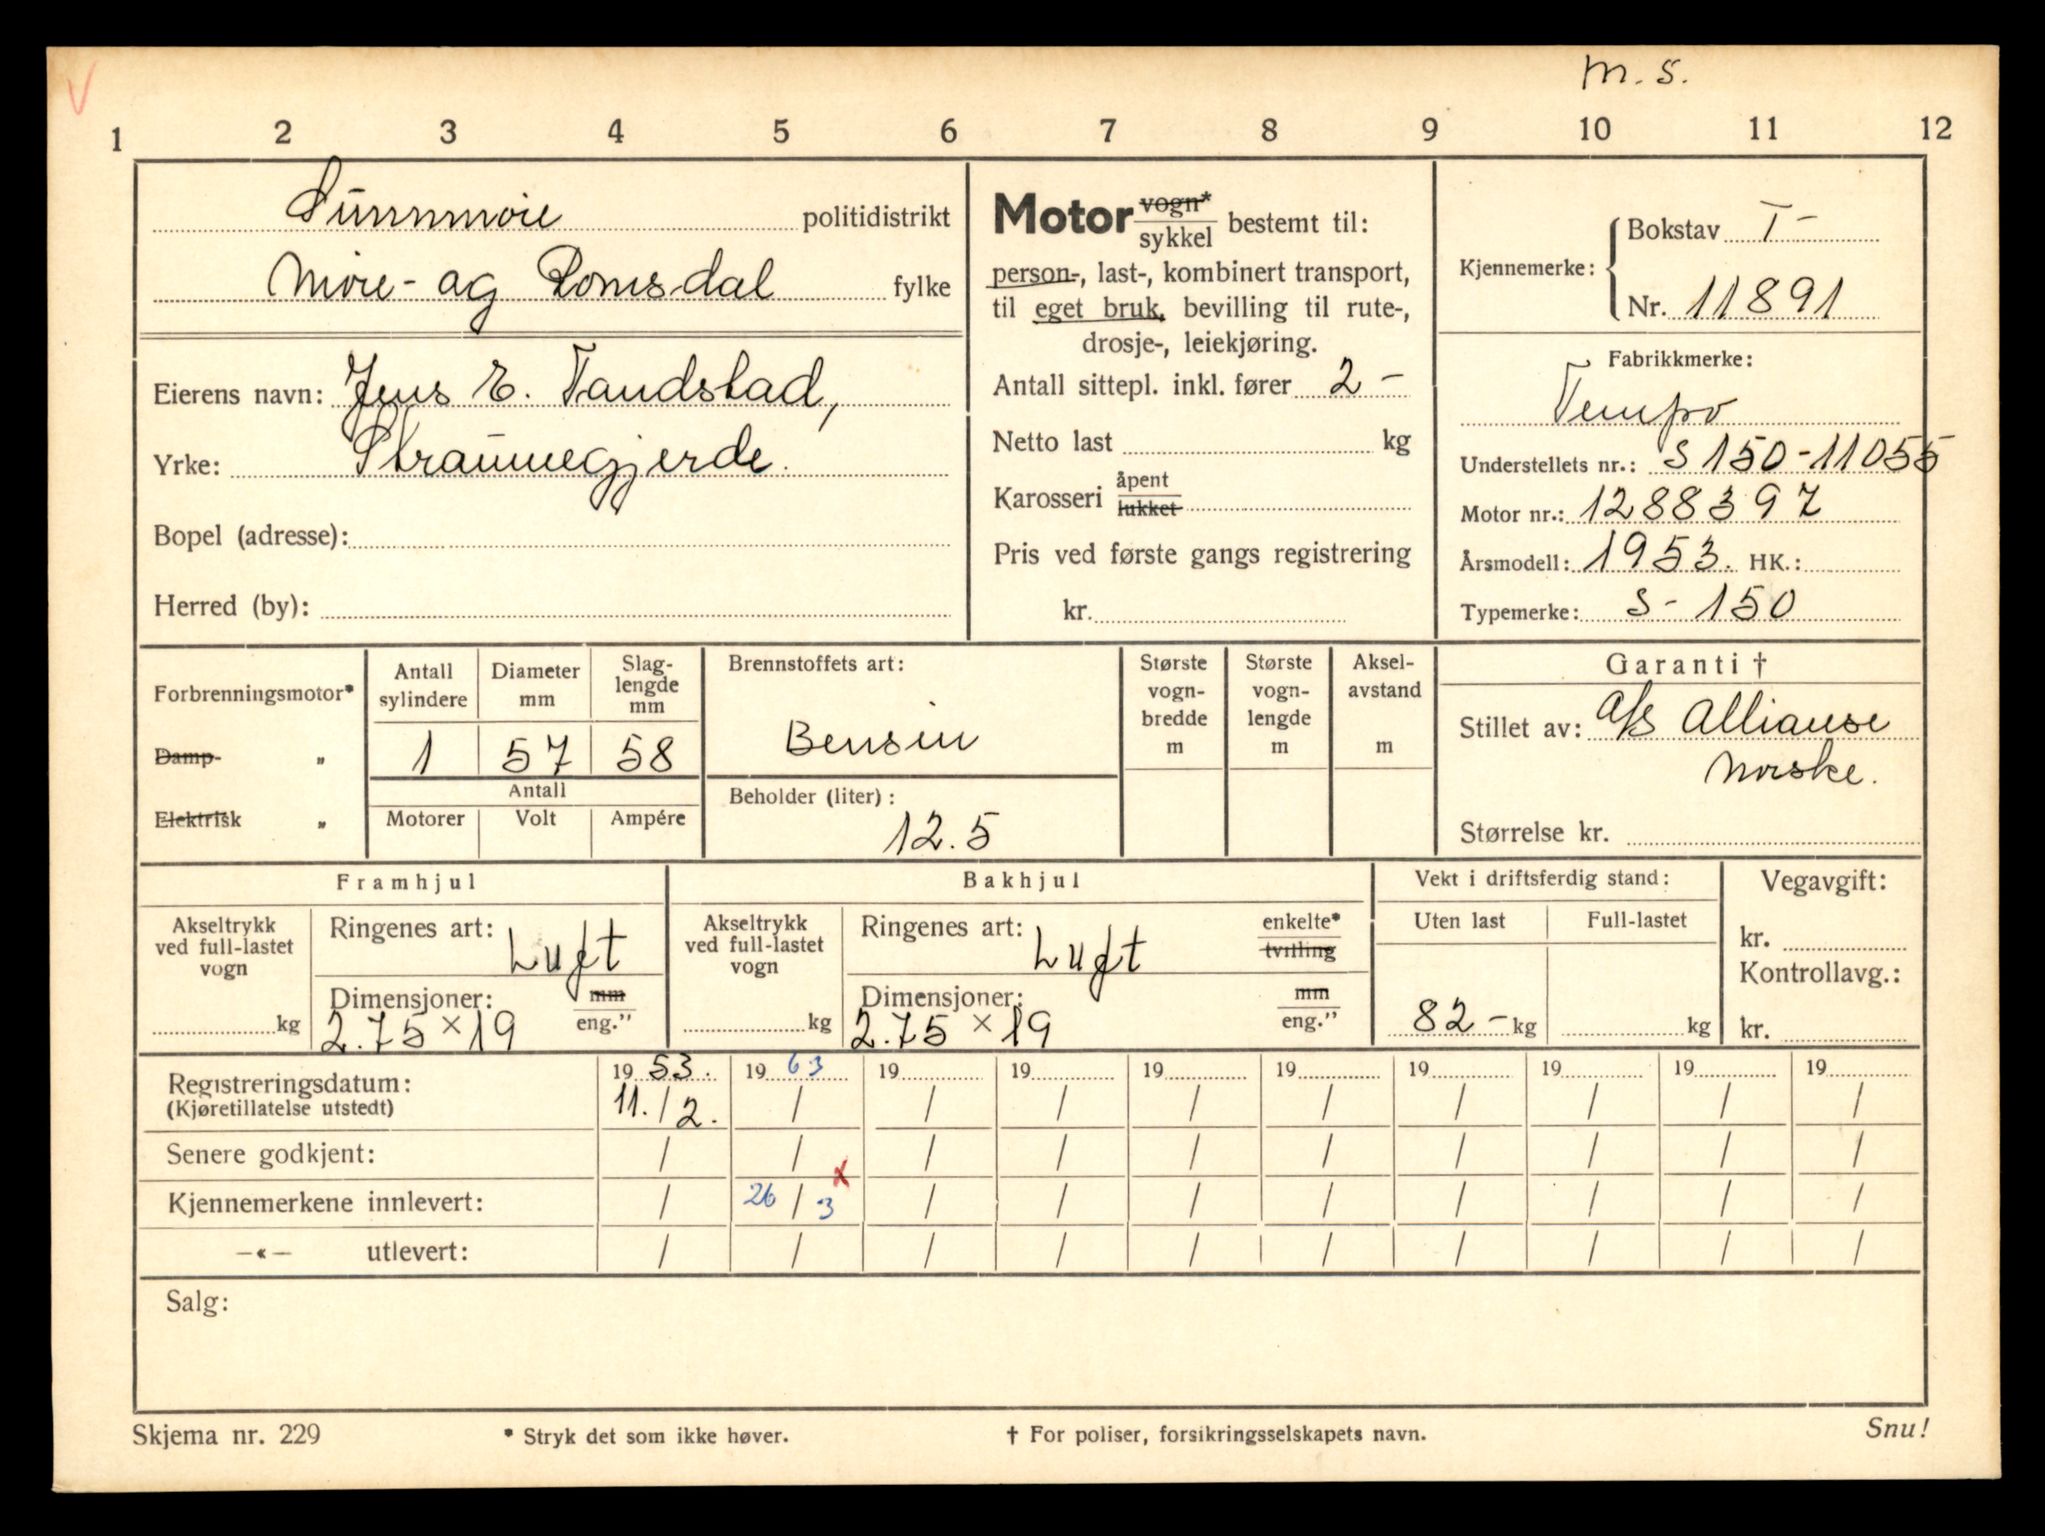 V
m. s.
1 2 3 4 5 6 7 8 9 10 11 12
Sunnmøre politidistrikt
Møre- og Romsdal fylke
Eierens navn: Jens E. Tandstad,
Yrke: Straumegjerde.
Bopel (adresse):
Herred (by):
Motor vogn* / sykkel bestemt til:
person-, last-, kombinert transport,
til eget bruk, bevilling til rute-,
drosje-, leiekjøring.
Antall sittepl. inkl. fører 2 -
Netto last kg
Karosseri åpent / lukket
Pris ved første gangs registrering
kr.
Kjennemerke: Bokstav T-
Nr. 11891
Fabrikkmerke:
Tempo
Understellets nr.: S 150-11055
Motor nr.: 1288397
Årsmodell: 1953. HK.:
Typemerke: S - 150
Forbrenningsmotor*
Damp- „
Elektrisk „
Antall sylindere 1
Diameter mm 57
Slag-lengde mm 58
Antall
Motorer Volt Ampére
Brennstoffets art:
Bensin
Beholder (liter):
12.5
Største vogn-bredde m
Største vogn-lengde m
Aksel-avstand m
Garanti †
Stillet av: A/S Allianse
Norske.
Størrelse kr.
Framhjul
Akseltrykk
ved full-lastet
vogn
kg
Ringenes art: Luft
Dimensjoner: mm / eng.”
2.75 × 19
Bakhjul
Akseltrykk
ved full-lastet
vogn
kg
Ringenes art: Luft enkelte* / tvilling
Dimensjoner: mm / eng.”
2.75 × 19
Vekt i driftsferdig stand:
Uten last Full-lastet
82 - kg kg
Vegavgift:
kr.
Kontrollavg.:
kr.
19 53. 19 63 19 19 19 19 19 19 19 19
Registreringsdatum: 11. / 2. / / / / / / / / /
(Kjøretillatelse utstedt)
Senere godkjent: / / / / / / / / / /
x
Kjennemerkene innlevert: / 26 / 3 / / / / / / / /
—«— utlevert: / / / / / / / / / /
Salg:
Skjema nr. 229 * Stryk det som ikke høver. † For poliser, forsikringsselskapets navn. Snu!